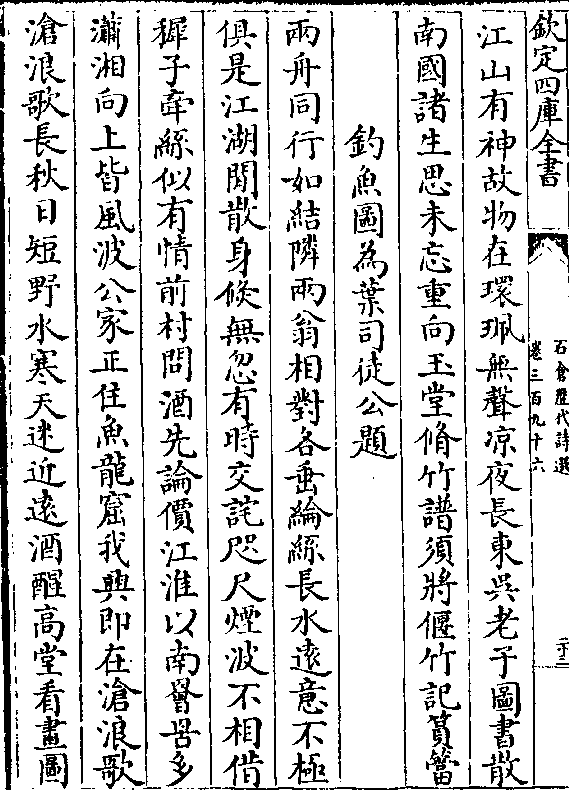 欽定四庫全書
石倉歷代詩選
卷三百九十六
江山有神故物在環珮無聲凉夜長東吳老子圖書散
南國諸生思未忘重向玉堂脩竹譜須將偃竹記篔簹
釣魚圖為葉司徒公題
兩舟同行如結隣兩翁相對各垂綸絲長水遠意不極
俱是江湖閒散身倐無忽有時交詫咫尺煙波不相借
穉子牽絲似有情前村問酒先論價江淮以南罾罟多
瀟湘向上皆風波公家正住魚龍窟我興即在滄浪歌
滄浪歌長秋日短野水寒天迷近遠酒醒高堂看畫圖